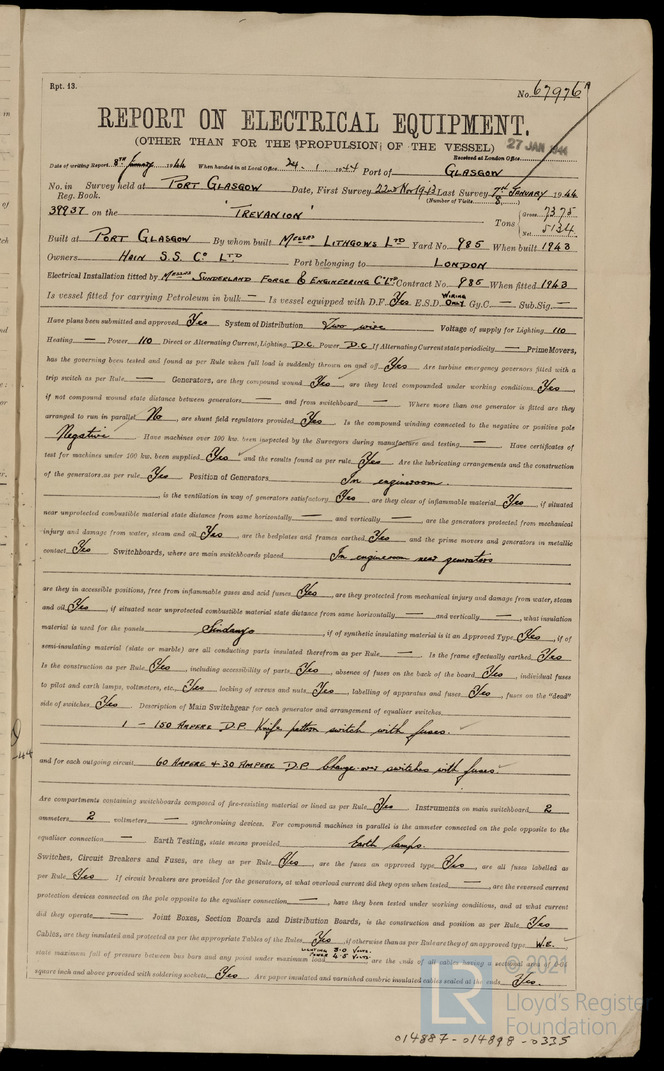 Rpt. 13.
No. 67976
REPORT ON ELECTRICAL EQUIPMENT.
(OTHER THAN FOR THE PROPULSION OF THE VESSEL)
27 JAN 1944
Received at London Office
Date of writing Report 8th January 1944 When handed in at Local Office 24.1.1944 Port of GLASGOW
No. in Survey held at PORT GLASGOW Date, First Survey 22nd Nov 1943 Last Survey 7th JANUARY 1944
Reg. Book. (Number of Visits 8)
39937 on the 'TREVANION' Tons { Gross 7375 Net 5134
Built at PORT GLASGOW By whom built MESSRS LITHGOWS LTD Yard No. 985 When built 1943
Owners HAIN S.S. Co LTD Port belonging to LONDON
Electrical Installation fitted by MESSRS SUNDERLAND FORGE & ENGINEERING Co LTD Contract No. 985 When fitted 1943
Is vessel fitted for carrying Petroleum in bulk — Is vessel equipped with D.F. Yes E.S.D. WIRING ONLY Gy.C. — Sub.Sig. —
Have plans been submitted and approved Yes System of Distribution Two wire Voltage of supply for Lighting 110
Heating — Power 110 Direct or Alternating Current, Lighting D.C. Power D.C. If Alternating Current state periodicity — Prime Movers,
has the governing been tested and found as per Rule when full load is suddenly thrown on and off Yes Are turbine emergency governors fitted with a
trip switch as per Rule — Generators, are they compound wound Yes, are they level compounded under working conditions Yes,
if not compound wound state distance between generators — and from switchboard — Where more than one generator is fitted are they
arranged to run in parallel No, are shunt field regulators provided Yes Is the compound winding connected to the negative or positive pole
Negative Have machines over 100 kw. been inspected by the Surveyors during manufacture and testing — Have certificates of
test for machines under 100 kw. been supplied Yes and the results found as per rule Yes Are the lubricating arrangements and the construction
of the generators as per rule Yes Position of Generators In engineroom.
, is the ventilation in way of generators satisfactory Yes, are they clear of inflammable material Yes, if situated
near unprotected combustible material state distance from same horizontally — and vertically —, are the generators protected from mechanical
injury and damage from water, steam and oil Yes, are the bedplates and frames earthed Yes and the prime movers and generators in metallic
contact Yes Switchboards, where are main switchboards placed In engineroom near generators
are they in accessible positions, free from inflammable gases and acid fumes Yes, are they protected from mechanical injury and damage from water, steam
and oil Yes, if situated near unprotected combustible material state distance from same horizontally — and vertically —, what insulation
material is used for the panels Sindanyo, if of synthetic insulating material is it an Approved Type Yes, if of
semi-insulating material (slate or marble) are all conducting parts insulated therefrom as per Rule — Is the frame effectually earthed Yes
Is the construction as per Rule Yes, including accessibility of parts Yes, absence of fuses on the back of the board Yes, individual fuses
to pilot and earth lamps, voltmeters, etc. Yes, locking of screws and nuts Yes, labelling of apparatus and fuses Yes, fuses on the "dead"
side of switches Yes Description of Main Switchgear for each generator and arrangement of equaliser switches
1 - 150 AMPERE D.P. Knife pattern switch with fuses.
and for each outgoing circuit 60 AMPERE & 30 AMPERE D.P. Change-over switches with fuses.
Are compartments containing switchboards composed of fire-resisting material or lined as per Rule Yes Instruments on main switchboard 2
ammeters 2 voltmeters — synchronising devices. For compound machines in parallel is the ammeter connected on the pole opposite to the
equaliser connection — Earth Testing, state means provided Earth lamps.
Switches, Circuit Breakers and Fuses, are they as per Rule Yes, are the fuses an approved type Yes, are all fuses labelled as
per Rule Yes If circuit breakers are provided for the generators, at what overload current did they open when tested —, are the reversed current
protection devices connected on the pole opposite to the equaliser connection —, have they been tested under working conditions, and at what current
did they operate — Joint Boxes, Section Boards and Distribution Boards, is the construction and position as per Rule Yes
Cables, are they insulated and protected as per the appropriate Tables of the Rules Yes, if otherwise than as per Rule are they of an approved type W.E.
state maximum fall of pressure between bus bars and any point under maximum load LIGHTING 3.0 VOLTS. POWER 4.5 VOLTS are the ends of all cables having a sectional area of 0.04
square inch and above provided with soldering sockets Yes. Are paper insulated and varnished cambric insulated cables sealed at the ends Yes.
© 2021
LR
Lloyd's Register
Foundation
014887-014898-0335